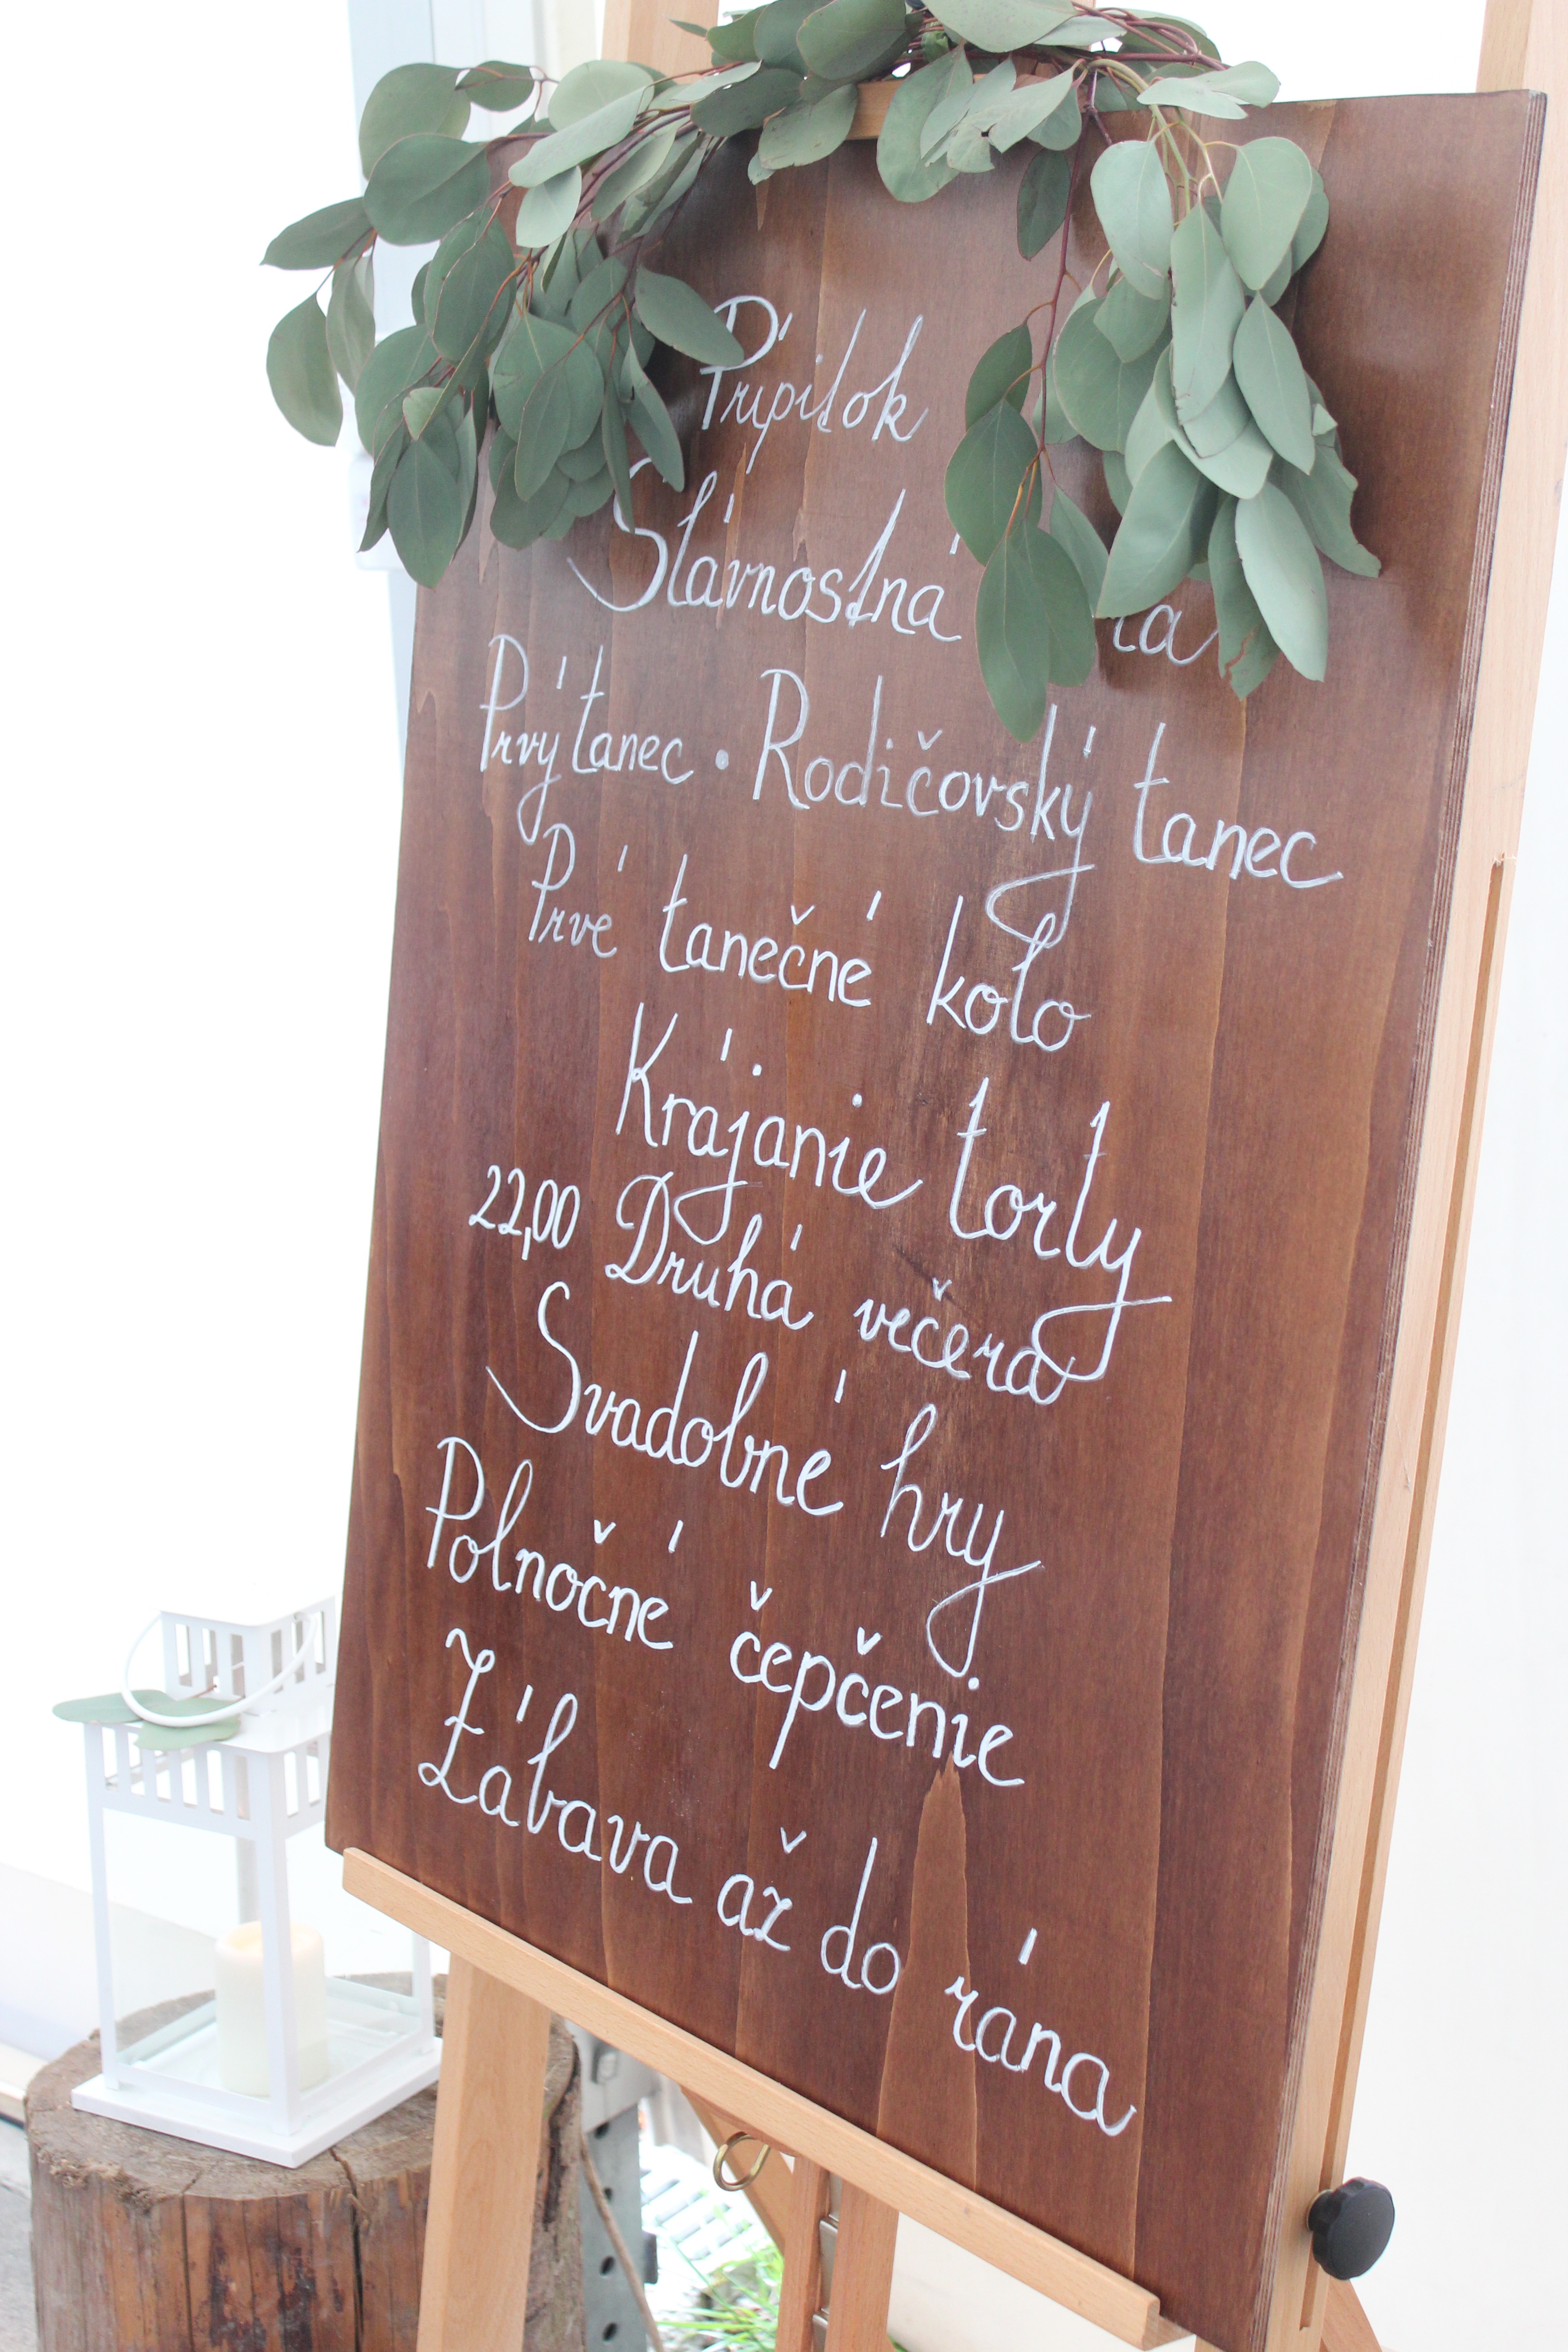 Prípitok
Slávnostná
Prvý tanec • Rodičovský tanec
Prvé tanečné kolo
Krájanie torty
22,00 Druhá večera
Svadobné hry
Polnočné čepčenie
Zábava až do rána